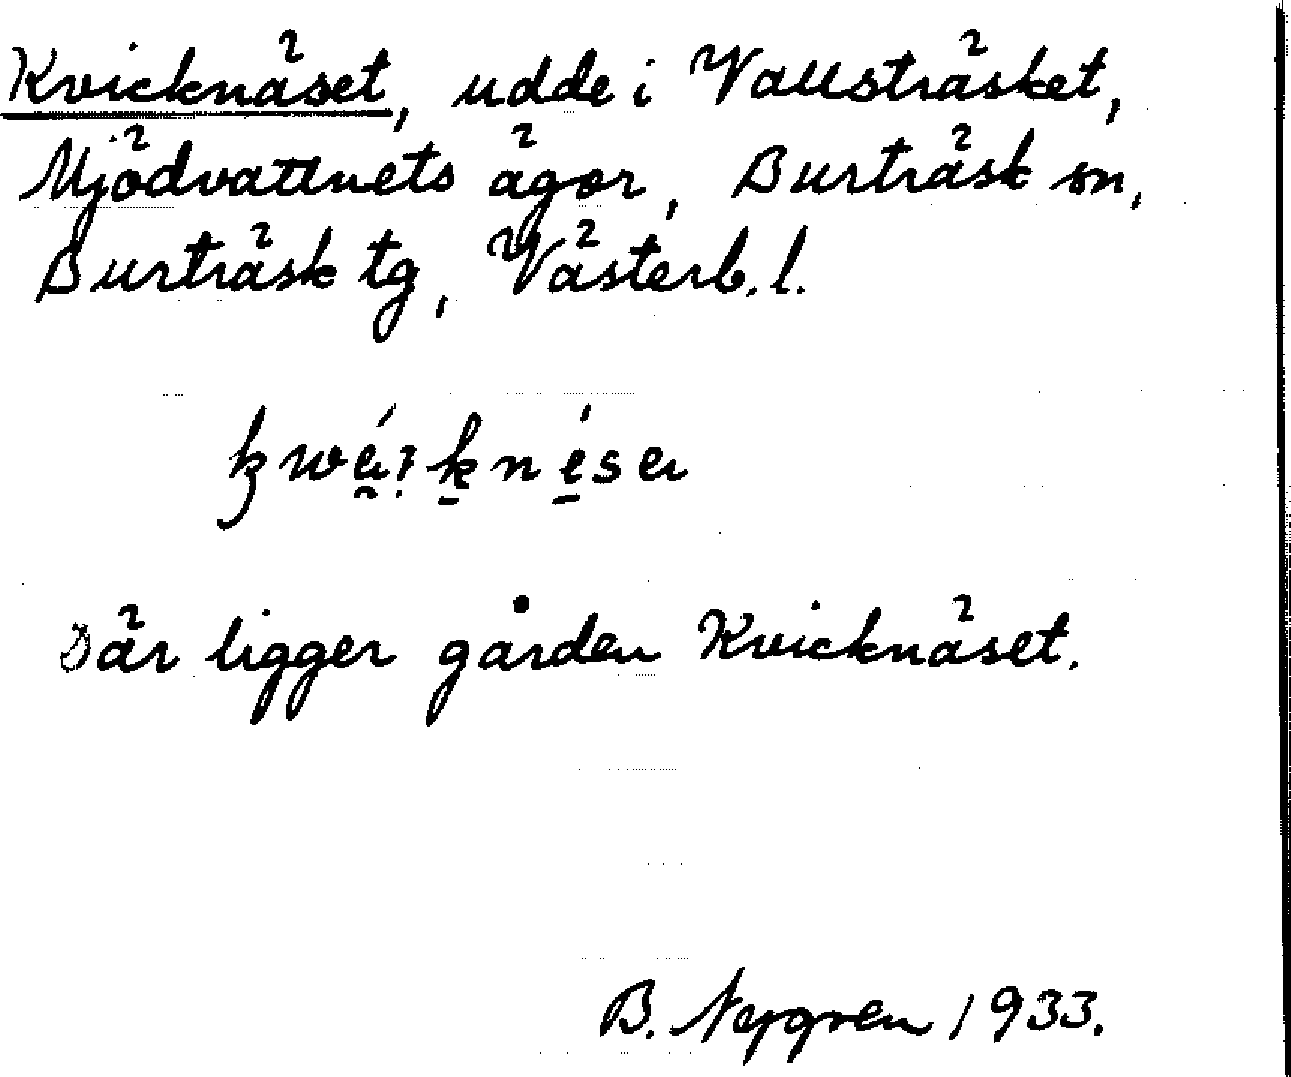 Kvicknäset, udde i Vallsträsket,
Mjödvattnets ägor, Burträsk sn,
Burträsk tg, Västerb. l.
Där ligger gården Kvicknäset.
B. Nygren 1933.